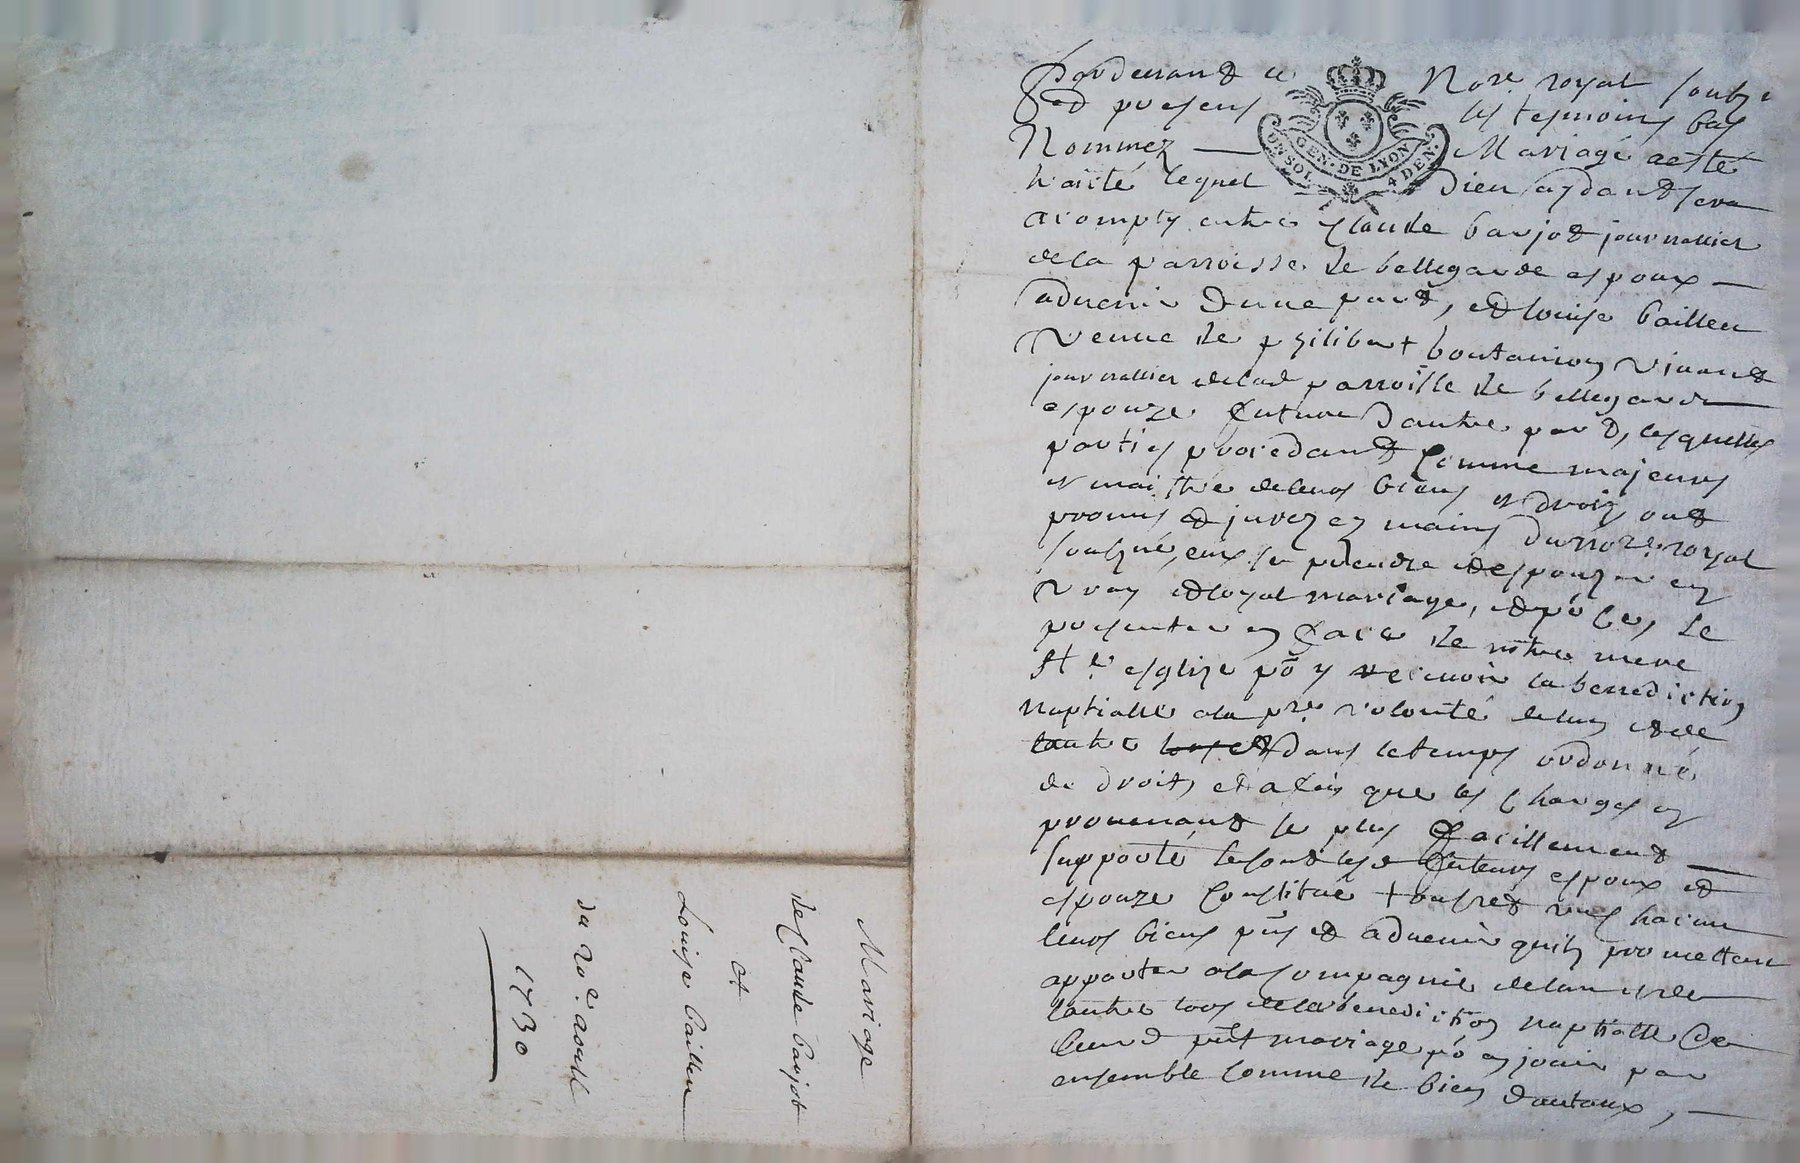 Pardevant le Nore. royal soubz.
Et presens les tesmoins bas
Nommez — Mariage a esté
traité lequel Dieu aydant sera
GEN. DE LYON
DE SOL. 4 DEN.
acomply entre Claude barjot journallier
de la parroisse de bellegarde espoux —
advenir d'une part, et louise bailleu
veuve de philibert boutavion vivant
journallier delad parroisse de bellegarde
espouze future d'autre part, lesquelles
parties procedant comme majeurs
et maistre de leurs biens et droitz ont
promis et jurez ez mains dud nore. royal
soubzné, eux se prendre et espouzer en
vray et loyal mariage, et po ce, se
presenter en face de nostre mere
Ste esglize po y recevoir la benediction
nuptialle a la pre. volonté de lun et de
lautre dans le temps ordonné
de droit, et afin que les charges en
provenant se plus facillement
supporté se sont lesd futeurs espoux et
espouze constitué tous et uns chacun
leurs biens pns et advenir quilz promettent
apporter a la compagnie de lun et de
lautre lors de la benediction nuptialle de
leurd pnt mariage po en jouir par
ensemble comme de biens dautaux, —
Mariage
de Claude barjot
et
Louise bailleu
du 20e. aoust
1730